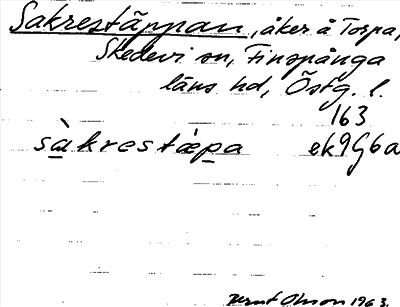 Sakrestäppan, åker å Torpa,
Skedevi sn, Finspånga
läns hd, Östg. l.
163
sàkrestæ̀pa ek9G6a
Bernt Olsson 1963.